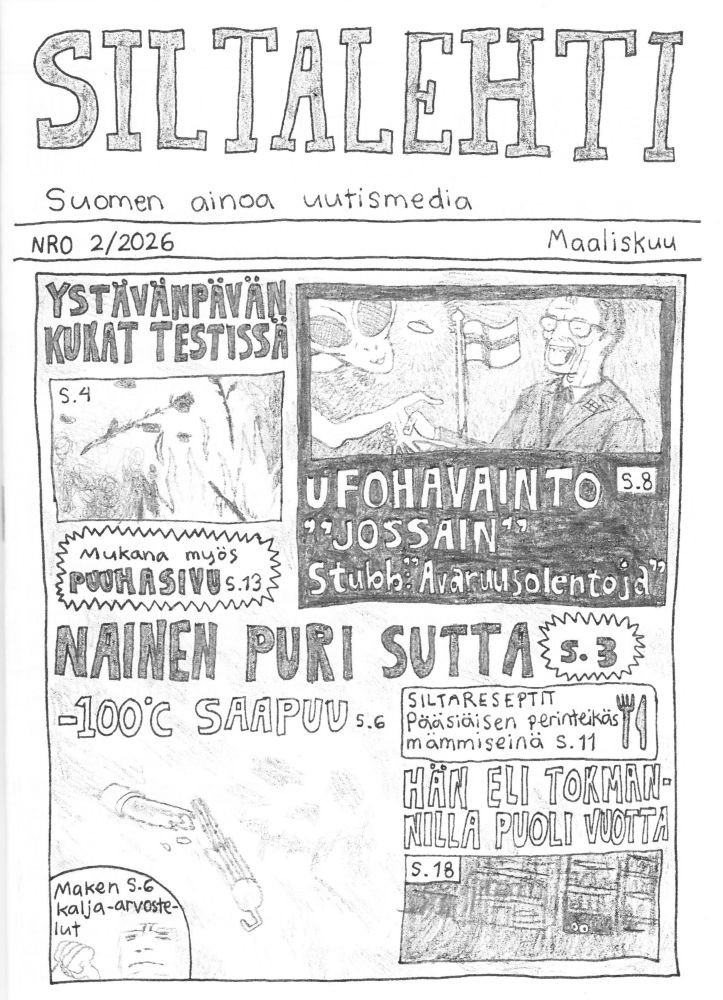 SILTALEHTI
Suomen ainoa uutismedia
NRO 2/2026
Maaliskuu
YSTÄVÄNPÄVÄN
KUKAT TESTISSÄ
S.4
Mukana myös
PUUHASIVU S.13
UFOHAVAINTO
S.8
"JOSSAIN"
Stubb:"Avaruusolentoja"
NAINEN PURI SUTTA
S.3
-100°C SAAPUU S.6
SILTARESEPTIT
Pääsiäisen perinteikäs
mämmiseinä S.11
HÄN ELI TOKMAN-
NILLA PUOLI VUOTTA
S.18
Maken S.6
kalja-arvoste-
lut